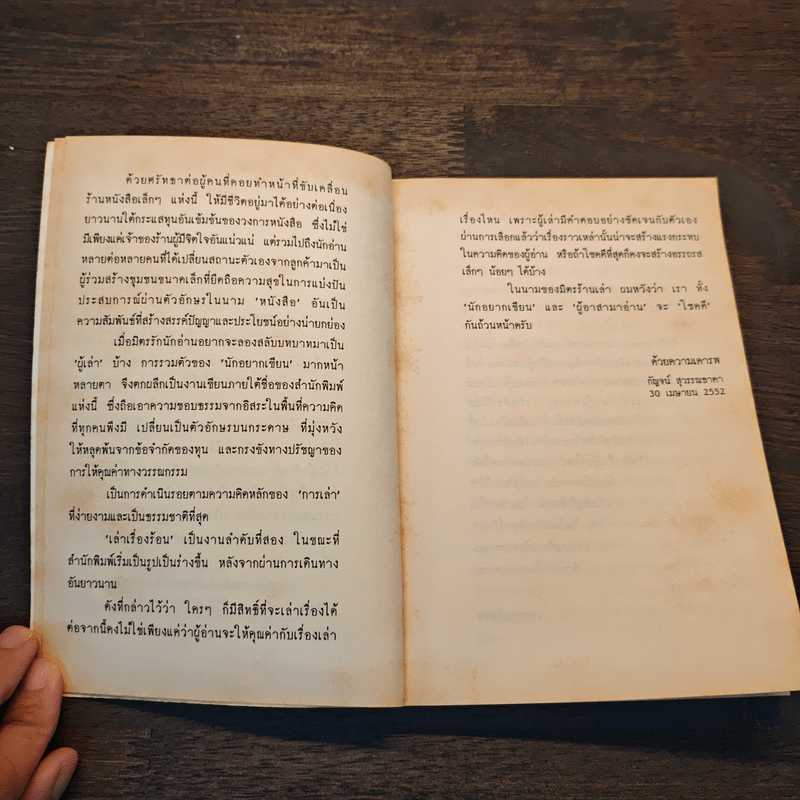 ด้วยศรัทธาต่อผู้คนที่คอยทำหน้าที่ขับเคลื่อน
ร้านหนังสือเล็กๆ แห่งนี้ ให้มีชีวิตอยู่มาได้อย่างต่อเนื่อง
ยาวนานใต้กระแสทุนอันเข้มข้นของวงการหนังสือ ซึ่งไม่ใช่
มีเพียงแค่เจ้าของร้านผู้มีจิตใจอันแน่วแน่ แต่รวมไปถึงนักอ่าน
หลายต่อหลายคนที่ได้เปลี่ยนสถานะตัวเองจากลูกค้ามาเป็น
ผู้ร่วมสร้างชุมชนขนาดเล็กที่ยึดถือความสุขในการแบ่งปัน
ประสบการณ์ผ่านตัวอักษรในนาม 'หนังสือ' อันเป็น
ความสัมพันธ์ที่สร้างสรรค์ปัญญาและประโยชน์อย่างน่ายกย่อง
เมื่อมิตรรักนักอ่านอยากจะลองสลับบทบาทมาเป็น
'ผู้เล่า' บ้าง การรวมตัวของ 'นักอยากเขียน' มากหน้า
หลายตา จึงตกผลึกเป็นงานเขียนภายใต้ชื่อของสำนักพิมพ์
แห่งนี้ ซึ่งถือเอาความชอบธรรมจากอิสระในพื้นที่ความคิด
ที่ทุกคนพึงมี เปลี่ยนเป็นตัวอักษรบนกระดาษ ที่มุ่งหวัง
ให้หลุดพ้นจากข้อจำกัดของทุน และกรงขังทางปรัชญาของ
การให้คุณค่าทางวรรณกรรม
เป็นการดำเนินรอยตามความคิดหลักของ 'การเล่า'
ที่ง่ายงามและเป็นธรรมชาติที่สุด
'เล่าเรื่องร้อน' เป็นงานลำดับที่สอง ในขณะที่
สำนักพิมพ์เริ่มเป็นรูปเป็นร่างขึ้น หลังจากผ่านการเดินทาง
อันยาวนาน
ดังที่กล่าวไว้ว่า ใครๆ ก็มีสิทธิ์ที่จะเล่าเรื่องได้
ต่อจากนี้คงไม่ใช่เพียงแค่ว่าผู้อ่านจะให้คุณค่ากับเรื่องเล่า
เรื่องไหน เพราะผู้เล่ามีคำตอบอย่างชัดเจนกับตัวเอง
ผ่านการเลือกแล้วว่าเรื่องราวเหล่านั้นน่าจะสร้างแรงกระทบ
ในความคิดของผู้อ่าน หรือถ้าโชคดีที่สุดก็คงจะสร้างอรรถรส
เล็กๆ น้อยๆ ได้บ้าง
ในนามของมิตรร้านเล่า ผมหวังว่า เรา ทั้ง
'นักอยากเขียน' และ 'ผู้อาสามาอ่าน' จะ 'โชคดี'
กันถ้วนหน้าครับ
ด้วยความเคารพ
กัญจน์ สุวรรณชาดา
30 เมษายน 2552